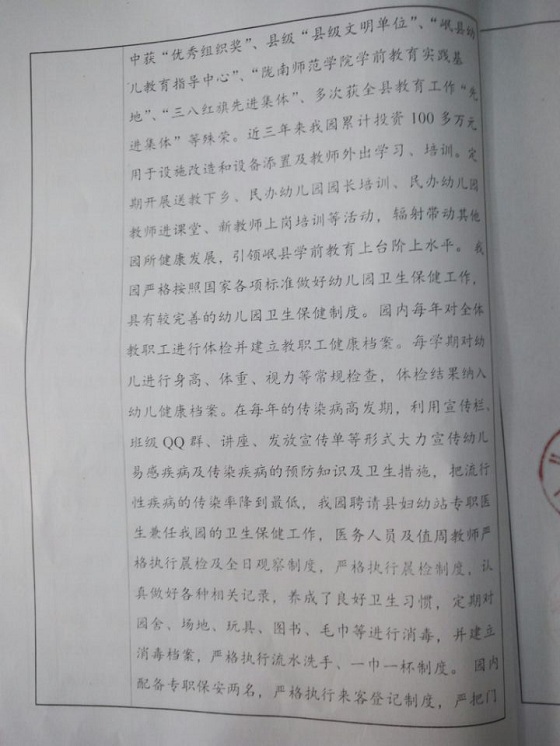 中获“优秀组织奖”、县级“县级文明单位”、“岷县幼
儿教育指导中心”、“陇南师范学院学前教育实践基
地”、“三八红旗先进集体”、多次获全县教育工作“先
进集体”等殊荣。近三年来我园累计投资 100 多万元
用于设施改造和设备添置及教师外出学习、培训。定
期开展送教下乡、民办幼儿园园长培训、民办幼儿园
教师进课堂、新教师上岗培训等活动，辐射带动其他
园所健康发展，引领岷县学前教育上台阶上水平。我
园严格按照国家各项标准做好幼儿园卫生保健工作，
具有较完善的幼儿园卫生保健制度。园内每年对全体
教职工进行体检并建立教职工健康档案。每学期对幼
儿进行身高、体重、视力等常规检查，体检结果纳入
幼儿健康档案。在每年的传染病高发期，利用宣传栏、
班级 QQ 群、讲座、发放宣传单等形式大力宣传幼儿
易感疾病及传染疾病的预防知识及卫生措施，把流行
性疾病的传染率降到最低，我园聘请县妇幼站专职医
生兼任我园的卫生保健工作，医务人员及值周教师严
格执行晨检及全日观察制度，严格执行晨检制度，认
真做好各种相关记录，养成了良好卫生习惯，定期对
园舍、场地、玩具、图书、毛巾等进行消毒，并建立
消毒档案，严格执行流水洗手、一巾一杯制度。园内
配备专职保安两名，严格执行来客登记制度，严把门